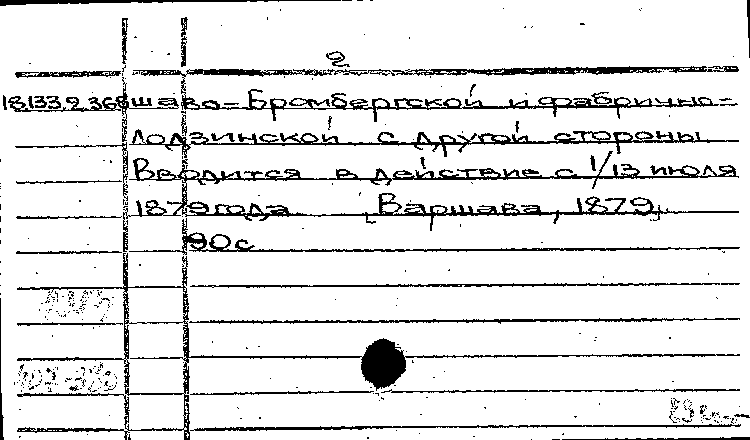 2
18.133.2.368 шаво-Бромбергской и фабрично-
лодзинской с другой стороны.
Вводится в действие с 1/13 июля
1879 года. [Варшава, 1879].
90 с